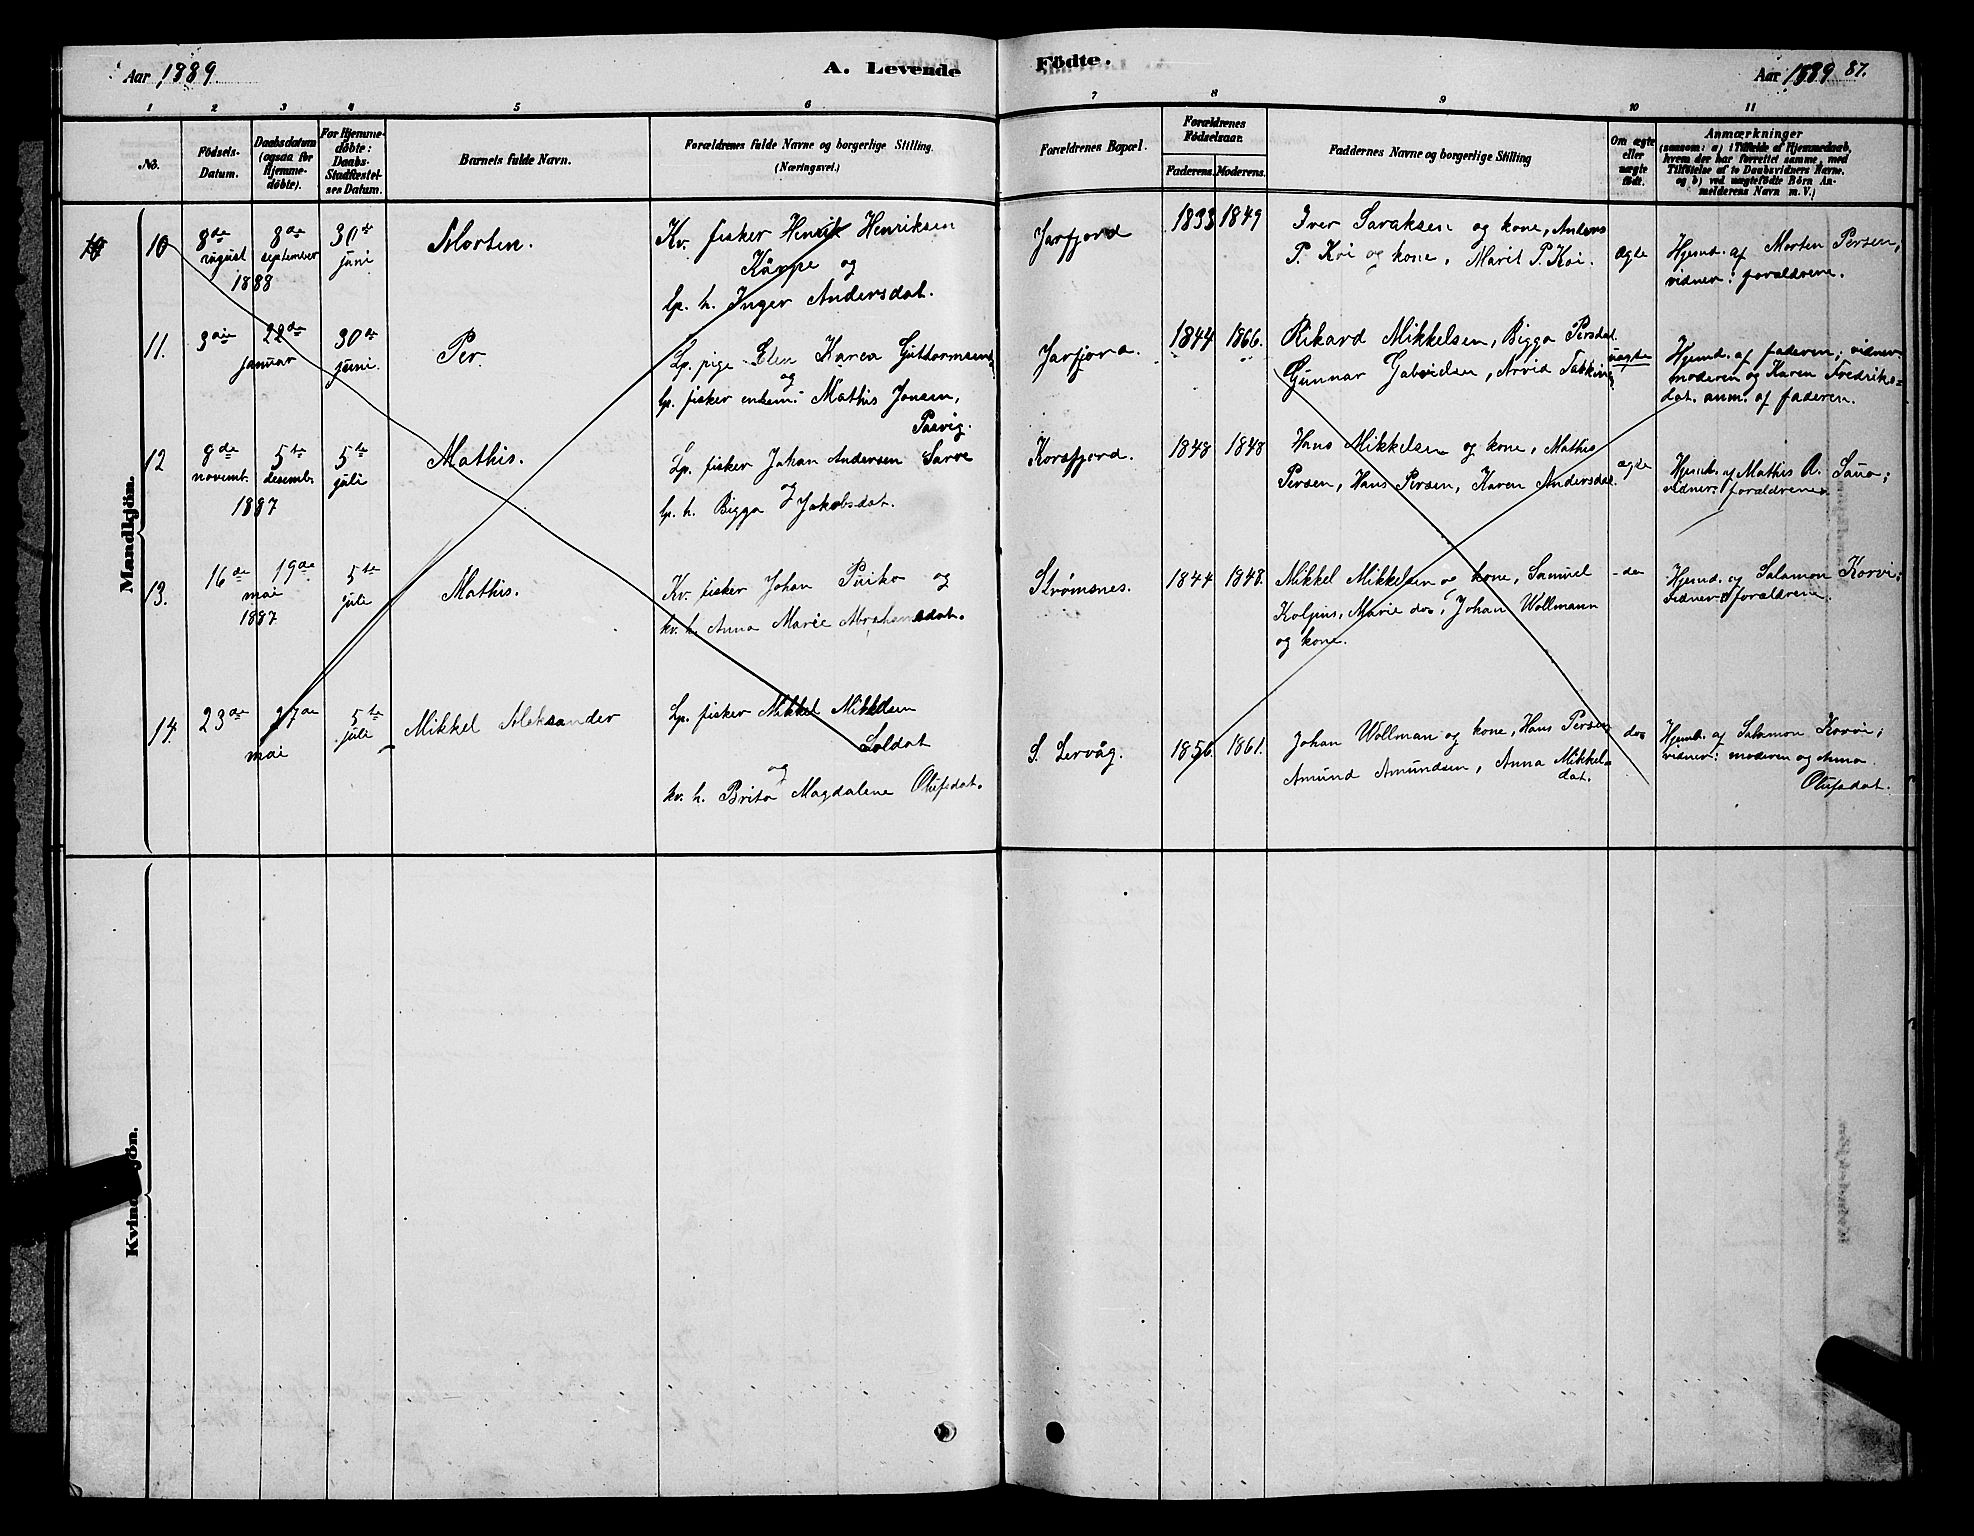 Aar 1889
A. Levende
Födte.
Aar 1889 87.
1 2 3 4 5 6 7 8 9 10 11
No.
Födsels-
Datum.
Daabsdatum
(ogsaa for
Hjemme-
döbte).
For Hjemme-
döbte:
Daabs-
Stadfæstel-
ses Datum.
Barnets fulde Navn.
Forældrenes fulde Navne og borgerlige Stilling.
(Næringsvei.)
Forældrenes Bopæl.
Forældrenes
Födselsaar.
Faderens. Moderens.
Faddernes Navne og borgerlige Stilling
Om ægte
eller
uægte
födt.
Anmærkninger
(saasom: a) i Tilfælde af Hjemmedaab,
hvem der har forrettet samme, med
Tilföielse af to Daabsvidners Navne,
og b) ved uægtefödte Börn An-
melderens Navn m. V.)
Mandkjön.
10 8de august 1888 8de september 30te juni Morten.
Kv. fisker Henrik Henriksen
Käppe og
lp. h. Inger Andersdat.
Jarfjord 1833 1849
Iver Saraksen og kone, Anders
P. Koi og kone, Marit P. Koi.
ægte
Hjemd. af Morten Persen,
vidner: forældrene.
11. 3die 22de januar 30te juni. Per.
Lp. pige Elen Karea Guttormsend.
og
lp. fisker enkem. Mathis Jonsen,
Pasvig.
Jarfjord. 1844 1866.
Rikard Mikkelsen, Bigga Persdat.
Gunnar Gabrielsen, Arvid
uægte
Hjemd. af faderen; vidner
moderen og Karen Fredriks-
dat. anm. af faderen.
12 8de novemb. 1887 5te desemb. 5te juli Mathis.
Lp. fisker Johan Andersen Sarre
og
lp. h. Bigga Jakobsdat.
Korsfjord. 1848 1848
Hans Mikkelsen og kone, Mathis
Persen, Hans Persen, Karen Andersdat.
ægte
Hjemd. af Mathis A. ;
vidner: forældrene.
13. 16de 19de mai 1887 5te juli Mathis.
Kv. fisker Johan og
kv. h. Anna Marie Abrahamsdat.
Strømsnes. 1844 1848.
Mikkel Mikkelsen og kone, Samuel
Kolpus, Marie do, Johan Wollmann
og kone.
do
Hjemd. af Salamon Korvi;
vidner: forældrene.
14. 23de 27de mai 5te juli Mikkel Aleksander
Lp. fisker Mikkel Mikkelsen
Soldat
og
kv. h. Brita Magdalene Olufsdat.
S. Lervåg. 1856. 1861.
Johan Wollman og kone, Hans Persen
Amund Amundsen, Anna Mikkels-
dat.
do
Hjemd. af Salamon Korvi;
vidner: moderen og Anna
Olufsdat.